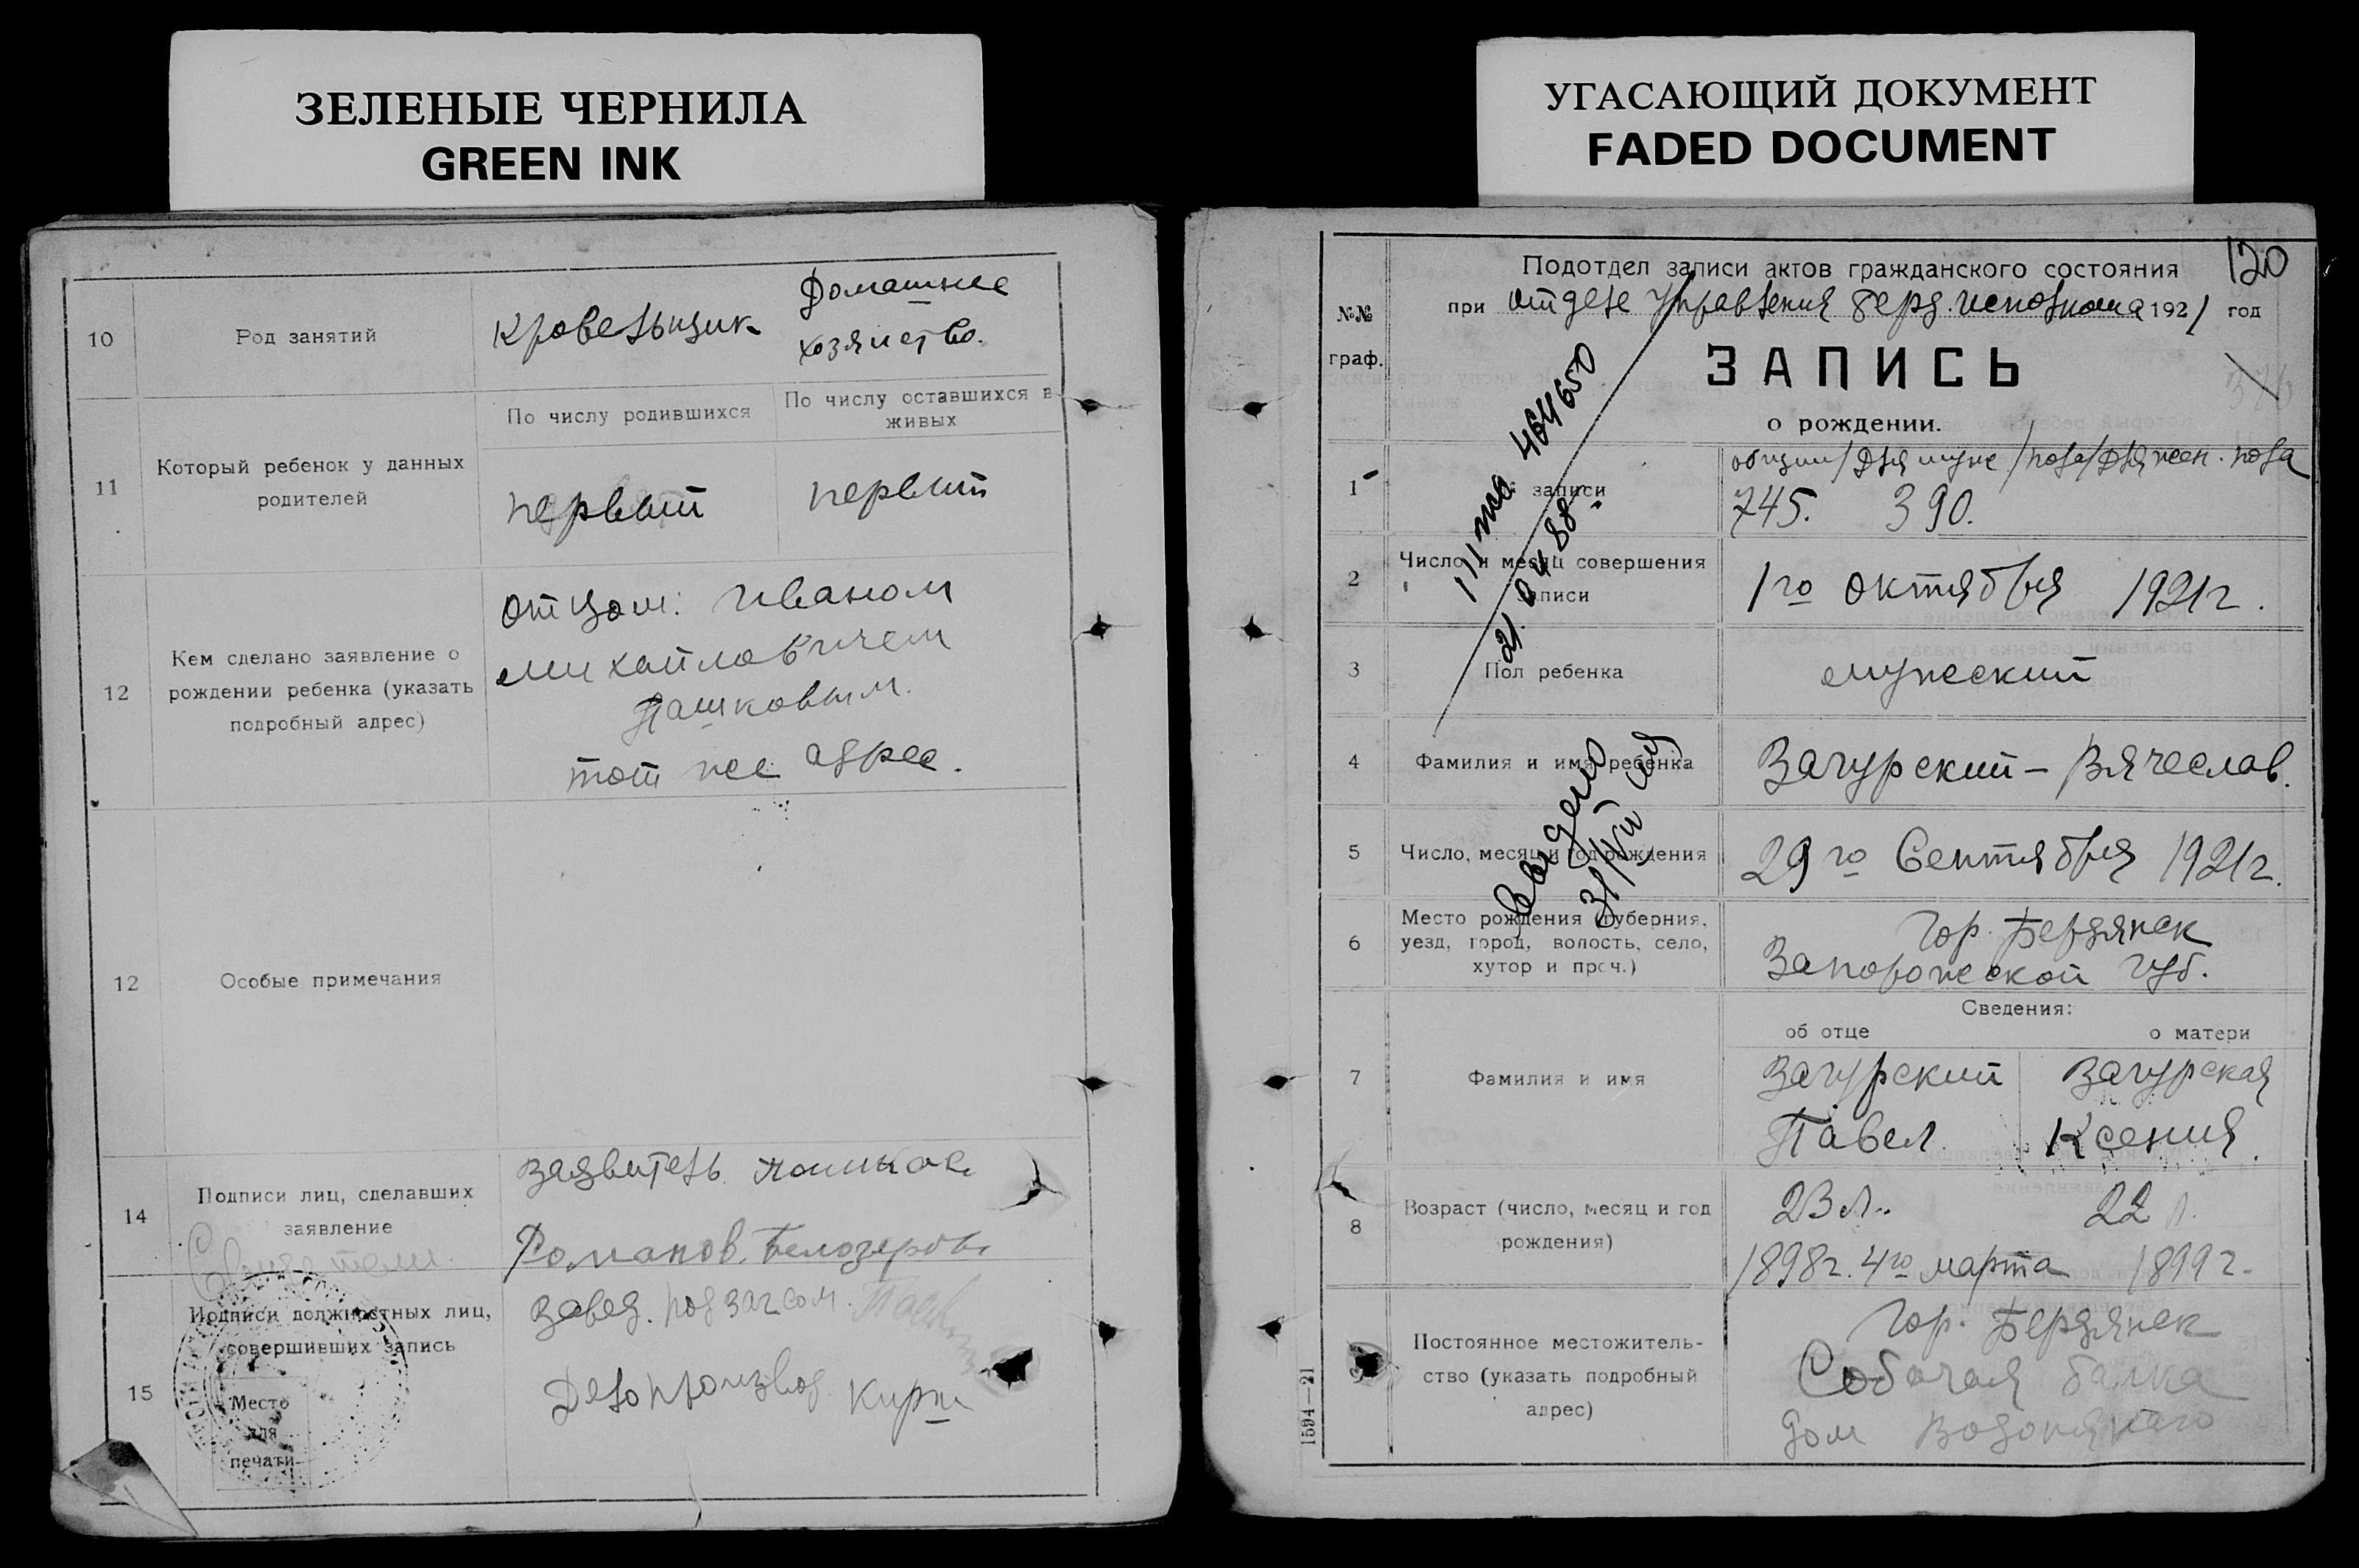 ЗЕЛЕНЫЕ ЧЕРНИЛА
GREEN INK
10
Род занятий
Кровельщик
Домашнее
хозяйство.
11
Который ребенок у данных
родителей
По числу родившихся
По числу оставшихся в
живых
первый
первый
12
Кем сделано заявление о
рождении ребенка (указать
подробный адрес)
отцом: Иваном
Михайловичем
Пашковым.
тот же адрес.
12
Особые примечания
14
Подписи лиц, сделавших
заявление
Свидетели.
Заявитель Пашков
Романов. Белозеров
15
Подписи должностных лиц,
совершивших запись
Место
для
печати
Завед. подзагсом.
Делопроизвод.
УГАСАЮЩИЙ ДОКУМЕНТ
FADED DOCUMENT
120
№№
граф.
Подотдел записи актов гражданского состояния
при отделе Управления Берд. исполкома 1921 год
ЗАПИСЬ
о рождении.
376
1
записи
общий/для муж/пола/для жен. пола
745. 390.
2
Число и месяц совершения
записи
1го октября 1921г.
3
Пол ребенка
мужеский
4
Фамилия и имя ребенка
Загурский – Вячеслав.
5
Число, месяц и год рождения
29го Сентября 1921г.
6
Место рождения (губерния,
уезд, город, волость, село,
хутор и проч.)
Гор. Бердянск
Запорожской губ.
7
Фамилия и имя
Сведения:
об отце
о матери
Загурский
Павел
Загурская
Ксения.
8
Возраст (число, месяц и год
рождения)
23 л.
22 л.
1898г. 4го марта
1899г.
Постоянное местожитель-
ство (указать подробный
адрес)
Гор. Бердянск
Собачая балка
дом
464650
21.04.88
Выдано
31/VII
1594—21